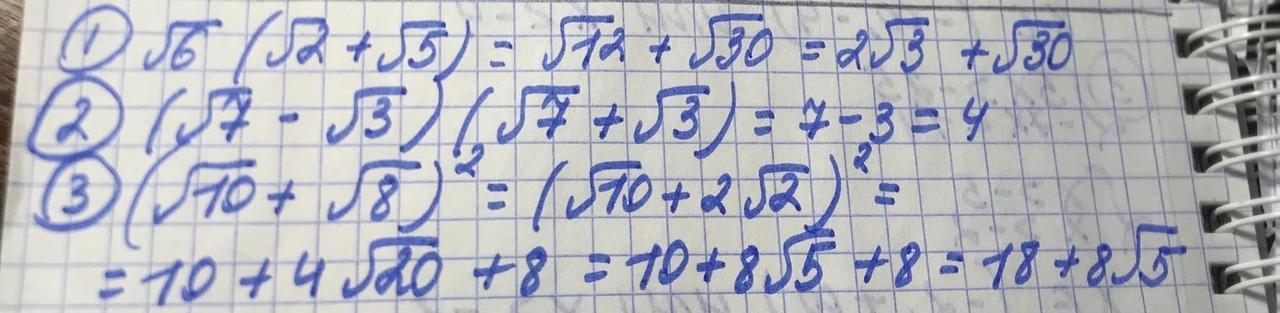 ① √6 (√2 + √5) = √12 + √30 = 2√3 + √30
② (√7 - √3) (√7 + √3) = 7 - 3 = 4
③ (√10 + √8)² = (√10 + 2√2)² =
= 10 + 4√20 + 8 = 10 + 8√5 + 8 = 18 + 8√5